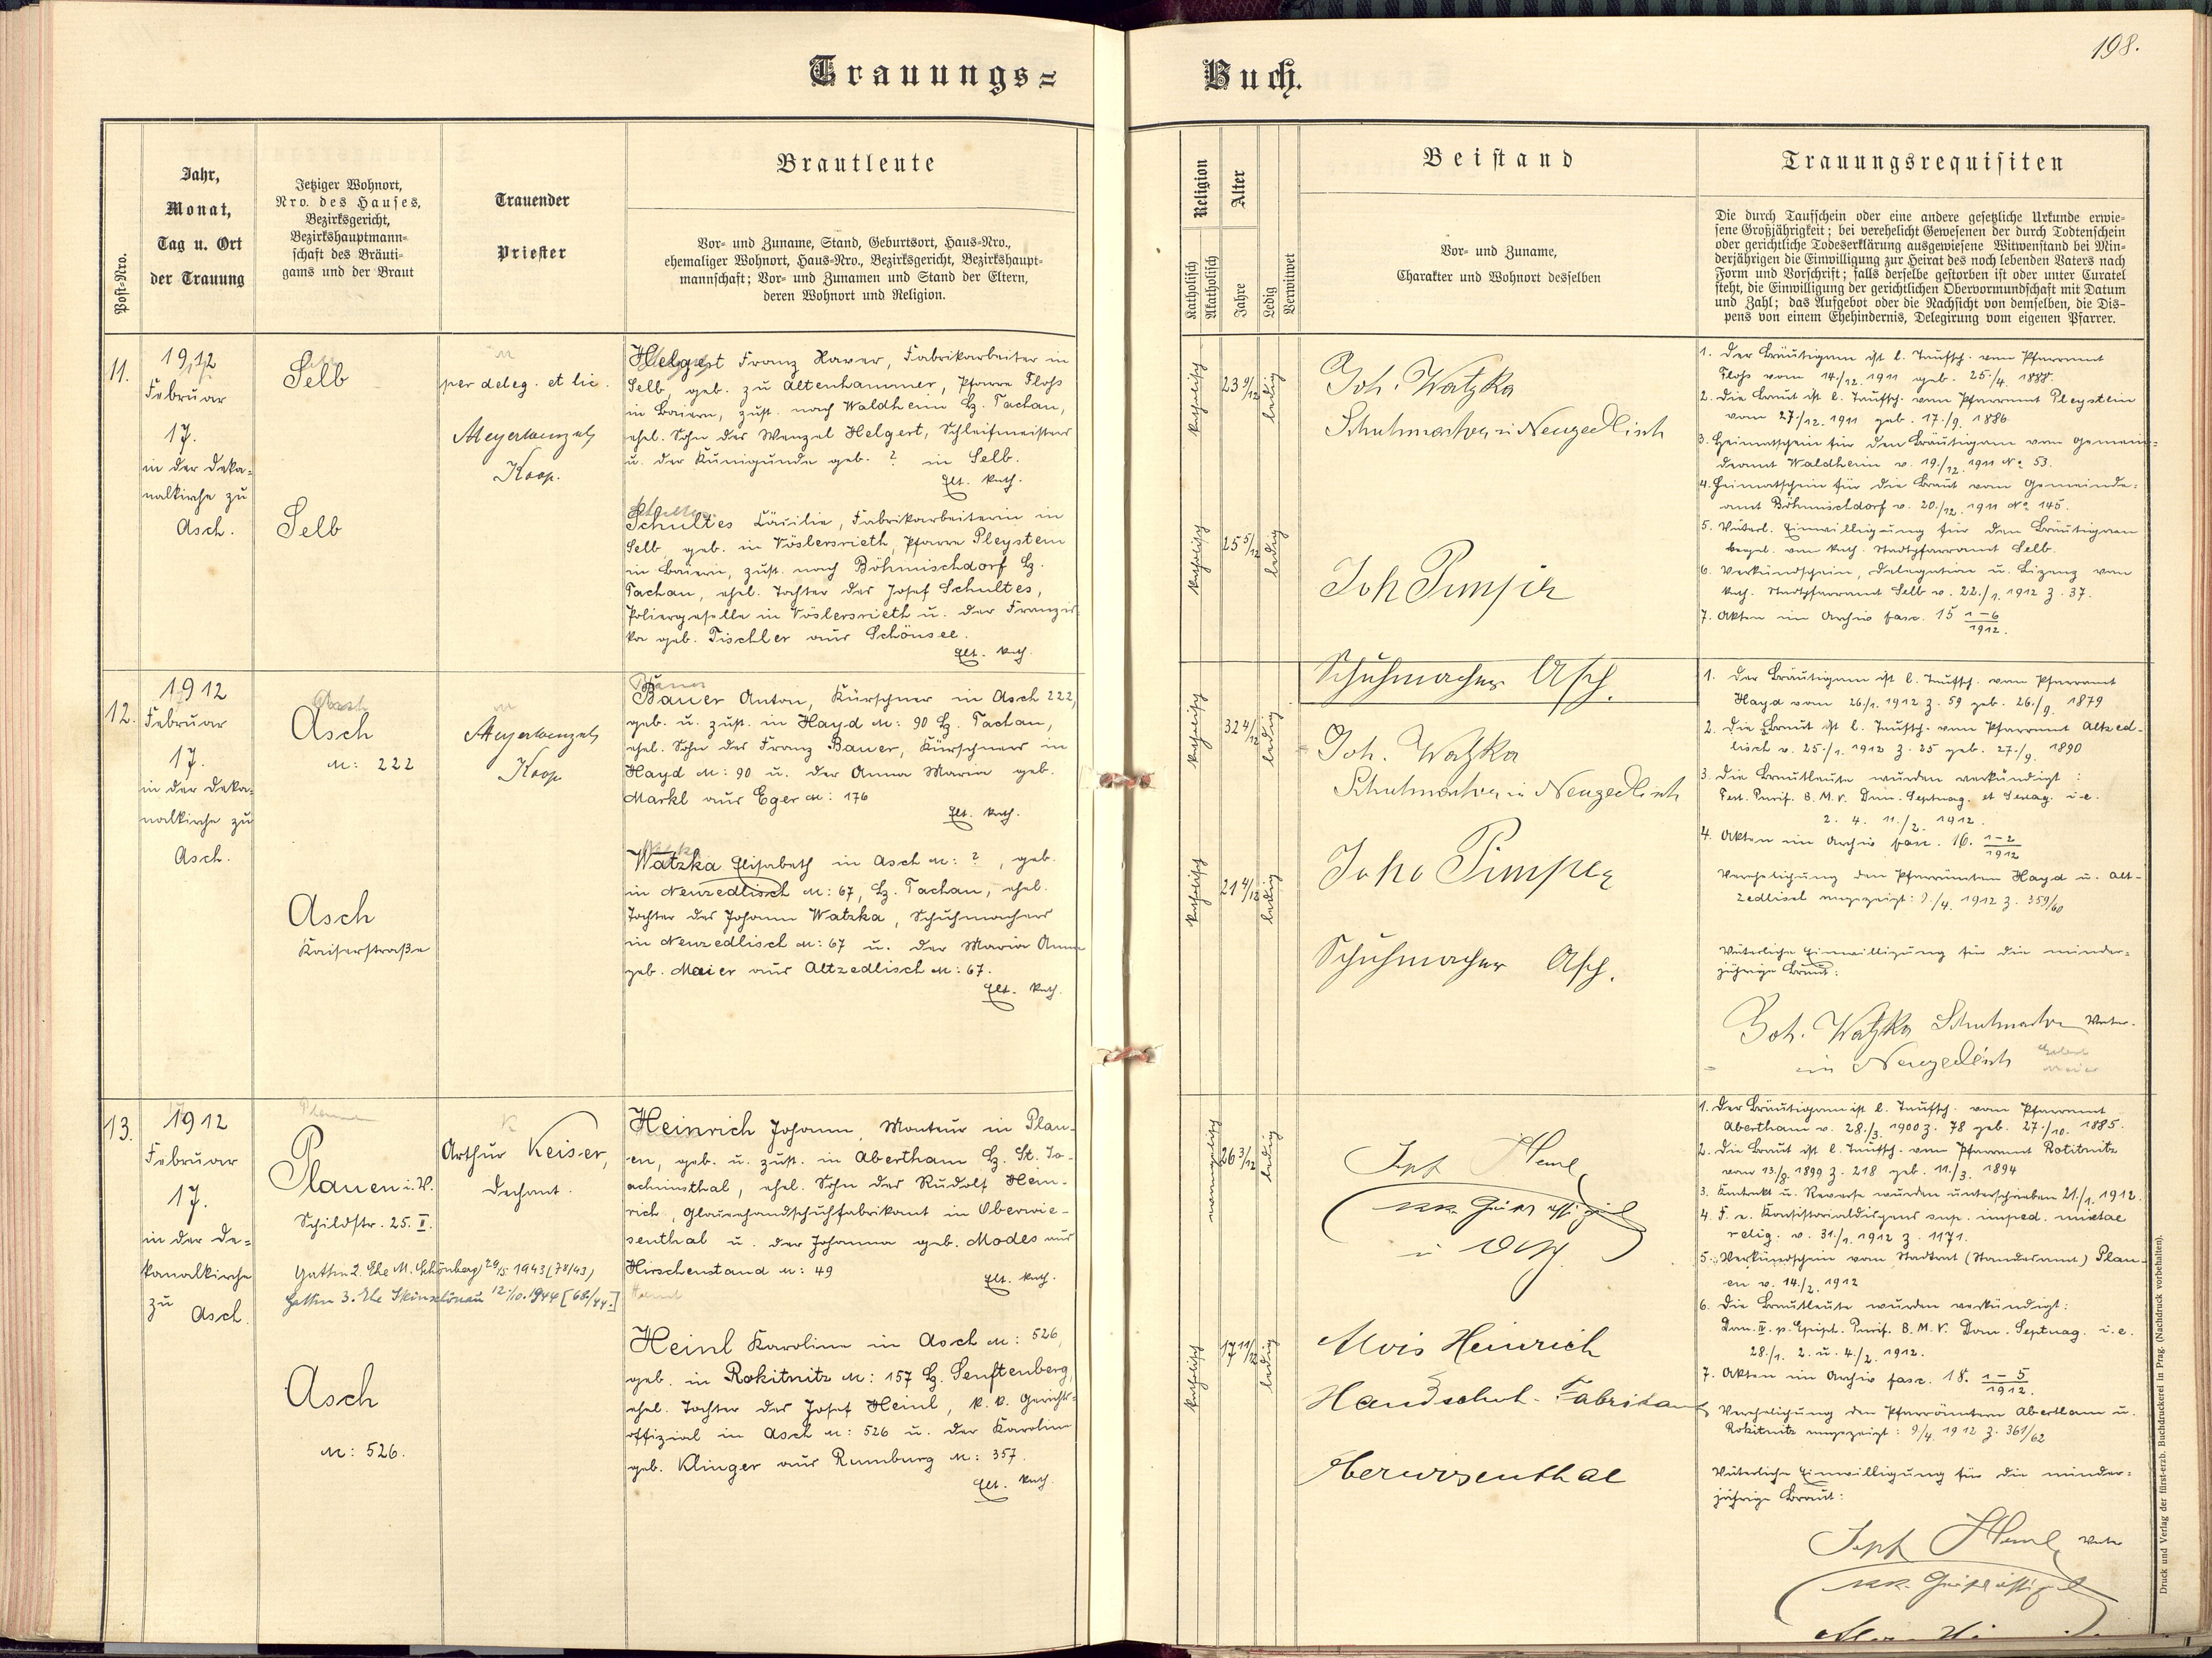 198.
Trauungs=
Buch.
Post=Nro.
Jahr,
Monat,
Tag u. Ort
der Trauung
Jetziger Wohnort,
Nro. des Hauses,
Bezirksgericht,
Bezirkshauptmann=
schaft des Bräuti=
gams und der Braut
Trauender
Priester
Brautleute
Vor= und Zuname, Stand, Geburtsort, Haus=Nro.,
ehemaliger Wohnort, Haus=Nro., Bezirksgericht, Bezirkshaupt=
mannschaft; Vor= und Zunamen und Stand der Eltern,
deren Wohnort und Religion.
Religion
Katholisch
Akatholisch
Alter
Jahre
Ledig
Verwitwet
Beistand
Vor= und Zuname,
Charakter und Wohnort desselben
Trauungsrequisiten
Die durch Taufschein oder eine andere gesetzliche Urkunde erwie=
sene Großjährigkeit; bei verehelicht Gewesenen der durch Todtenschein
oder gerichtliche Todeserklärung ausgewiesene Witwenstand bei Min=
derjährigen die Einwilligung zur Heirat des noch lebenden Vaters nach
Form und Vorschrift; falls derselbe gestorben ist oder unter Curatel
steht, die Einwilligung der gerichtlichen Obervormundschaft mit Datum
und Zahl; das Aufgebot oder die Nachsicht von demselben, die Dis=
pens von einem Ehehindernis, Delegirung vom eigenen Pfarrer.
11.
1912
Februar
17.
in der Deka=
nalkirche zu
Asch.
Selb
Selb
per deleg. et lic.
Meyerwenzel
Koop.
Helgert Franz Xaver, Fabrikarbeiter in
Selb, geb. zu Altenhammer, Pfarre Floss
in Baiern, zust. nach Waldheim Bz. Tachau,
ehel. Sohn des Wenzel Helgert, Schleifmeisters
u. der Kunigunde geb. ? in Selb.
Elt. kath.
Schultes Cäcilie, Fabrikarbeiterin in
Selb, geb. in Vöslesrieth, Pfarre Pleystein
in Baiern, zust. nach Böhmischdorf Bz.
Tachau, ehel. Tochter des Josef Schultes,
Poliergeselle in Vöslesrieth u. der Franzis
ka geb. Tischler aus Schönsee.
Elt. kath.
katholisch
23 9/12
ledig
katholisch
25 5/12
ledig
Joh. Watzka
Schuhmacher in Neuzedlisch
Joh Pimper
Schuhmacher Asch.
1. Der Bräutigam ist l. Taufsch. vom Pfarramt
Floss vom 14./12. 1911 geb. 25./4. 1888.
2. Die Braut ist l. Taufsch. vom Pfarramt Pleystein
vom 27./12. 1911 geb. 17./9. 1886.
3. Heimatschein für den Bräutigam vom Gemein=
deamt Waldheim v. 19./12. 1911 No 53.
4. Heimatschein für die Braut vom Gemeinde=
amt Böhmischdorf v. 20./12. 1911 No 145.
5. Väterl. Einwilligung für den Bräutigam
begl. vom kath. Stadtpfarramt Selb.
6. Verkündschein, Delegation u. Lizenz vom
kath. Stadtpfarramt Selb v. 22./1. 1912 z. 37.
7. Akten im Archiv fasc. 15 1-6/1912.
12.
1912
Februar
17.
in der Deka=
nalkirche zu
Asch.
Asch
N: 222
Asch
Kaiserstraße
Meyerwenzel
Koop
Bauer Anton, Kürschner in Asch 222,
geb. u. zust. in Hayd N: 90 Bz. Tachau,
ehel. Sohn des Franz Bauer, Kürschners in
Hayd N: 90 u. der Anna Maria geb.
Markl aus Eger N: 176
Elt. kath.
Watzka Elisabeth in Asch N: ?, geb.
in Neuzedlisch N: 67, Bz. Tachau, ehel.
Tochter des Johann Watzka, Schuhmachers
in Neuzedlisch N: 67 u. der Maria Anna
geb. Maier aus Altzedlisch N: 67.
Elt. kath.
katholisch
32 4/12
ledig
katholisch
21 4/12
ledig
Joh. Watzka
Schuhmacher in Neuzedlisch
Joho Pimper
Schuhmacher Asch.
1. Der Bräutigam ist l. Taufsch. vom Pfarramt
Hayd vom 26/1. 1912 z. 59 geb. 26./9. 1879
2. Die Braut ist l. Taufsch. vom Pfarramt Altzed-
lisch v. 25./1. 1912 z. 25 geb. 27./9. 1890
3. Die Brautleute wurden verkündigt:
Fest. Purif. B. M. V. Dom. Septuag. et Sexag. i.e.
2. 4. 11./2. 1912.
4. Akten im Archiv fasc. 16. 1-2/1912
Verehelichung den Pfarrämtern Hayd u. Alt-
zedlisch angezeigt: 9./4. 1912 z. 359/60
Väterliche Einwilligung für die minder=
jährige Braut:
Joh. Watzka Schuhmacher Vater.
in Neuzedlisch
13.
1912
Februar
17.
in der De=
kanalkirche
zu Asch.
Plauen i. V.
Schildstr. 25. II.
Gattin 2. Ehe M. Schönberg 29/5 1943 (78/43)
Gattin 3. Ehe Steinschönau 12./10. 1944 [68/44.]
Asch
N: 526.
Arthur Keiser,
Dechant.
Heinrich Johann, Monteur in Plau-
en, geb. u. zust. in Abertham Bz. St. Jo-
achimsthal, ehel. Sohn des Rudolf Hein-
rich, Glacehandschuhfabrikant in Oberwie-
senthal u. der Johanna geb. Modes aus
Hirschenstand N: 49
Elt. kath.
Heinl Karoline in Asch N: 526,
geb. in Rokitnitz N: 157 Bz. Senftenberg,
ehel. Tochter des Josef Heinl, k. k. Gerichts=
offizial in Asch N: 526 u. der Karoline
geb. Klinger aus Rumburg N: 357.
Elt. kath.
evangelisch
26 3/12
ledig
katholisch
17 11/12
ledig
Josef Heinl
in Asch
Alois Heinrich
Handschuh-Fabrikant
Oberwiesenthal
1. Der Bräutigam ist l. Taufsch. vom Pfarramt
Abertham v. 28./3. 1900 z. 78 geb. 27./10. 1885.
2. Die Braut ist l. Taufsch. vom Pfarramt Rokitnitz
vom 13./8. 1899 z. 218 geb. 11./3. 1894
3. Kontrakt u. Reverse wurden unterschrieben 21./1. 1912.
4. F. e. Konsistorialdispens sup. imped. mixtae
relig. v. 31./1. 1912 z. 1171.
5. Verkündschein vom Stadtrat (Standesamt) Plau-
en v. 14./2. 1912
6. Die Brautleute wurden verkündigt:
Dom. IV. p. Epiph. Purif. B. M. V. Dom. Septuag. i.e.
28./1. 2. u. 4./2. 1912.
7. Akten im Archiv fasc. 18. 1-5/1912.
Verehelichung den Pfarrämtern Abertham u.
Rokitnitz angezeigt: 9/4. 1912 z. 361/62
Väterliche Einwilligung für die minder=
jährige Braut:
Josef Heinl Vater
Druck und Verlag der fürst=erzb. Buchdruckerei in Prag. (Nachdruck vorbehalten).